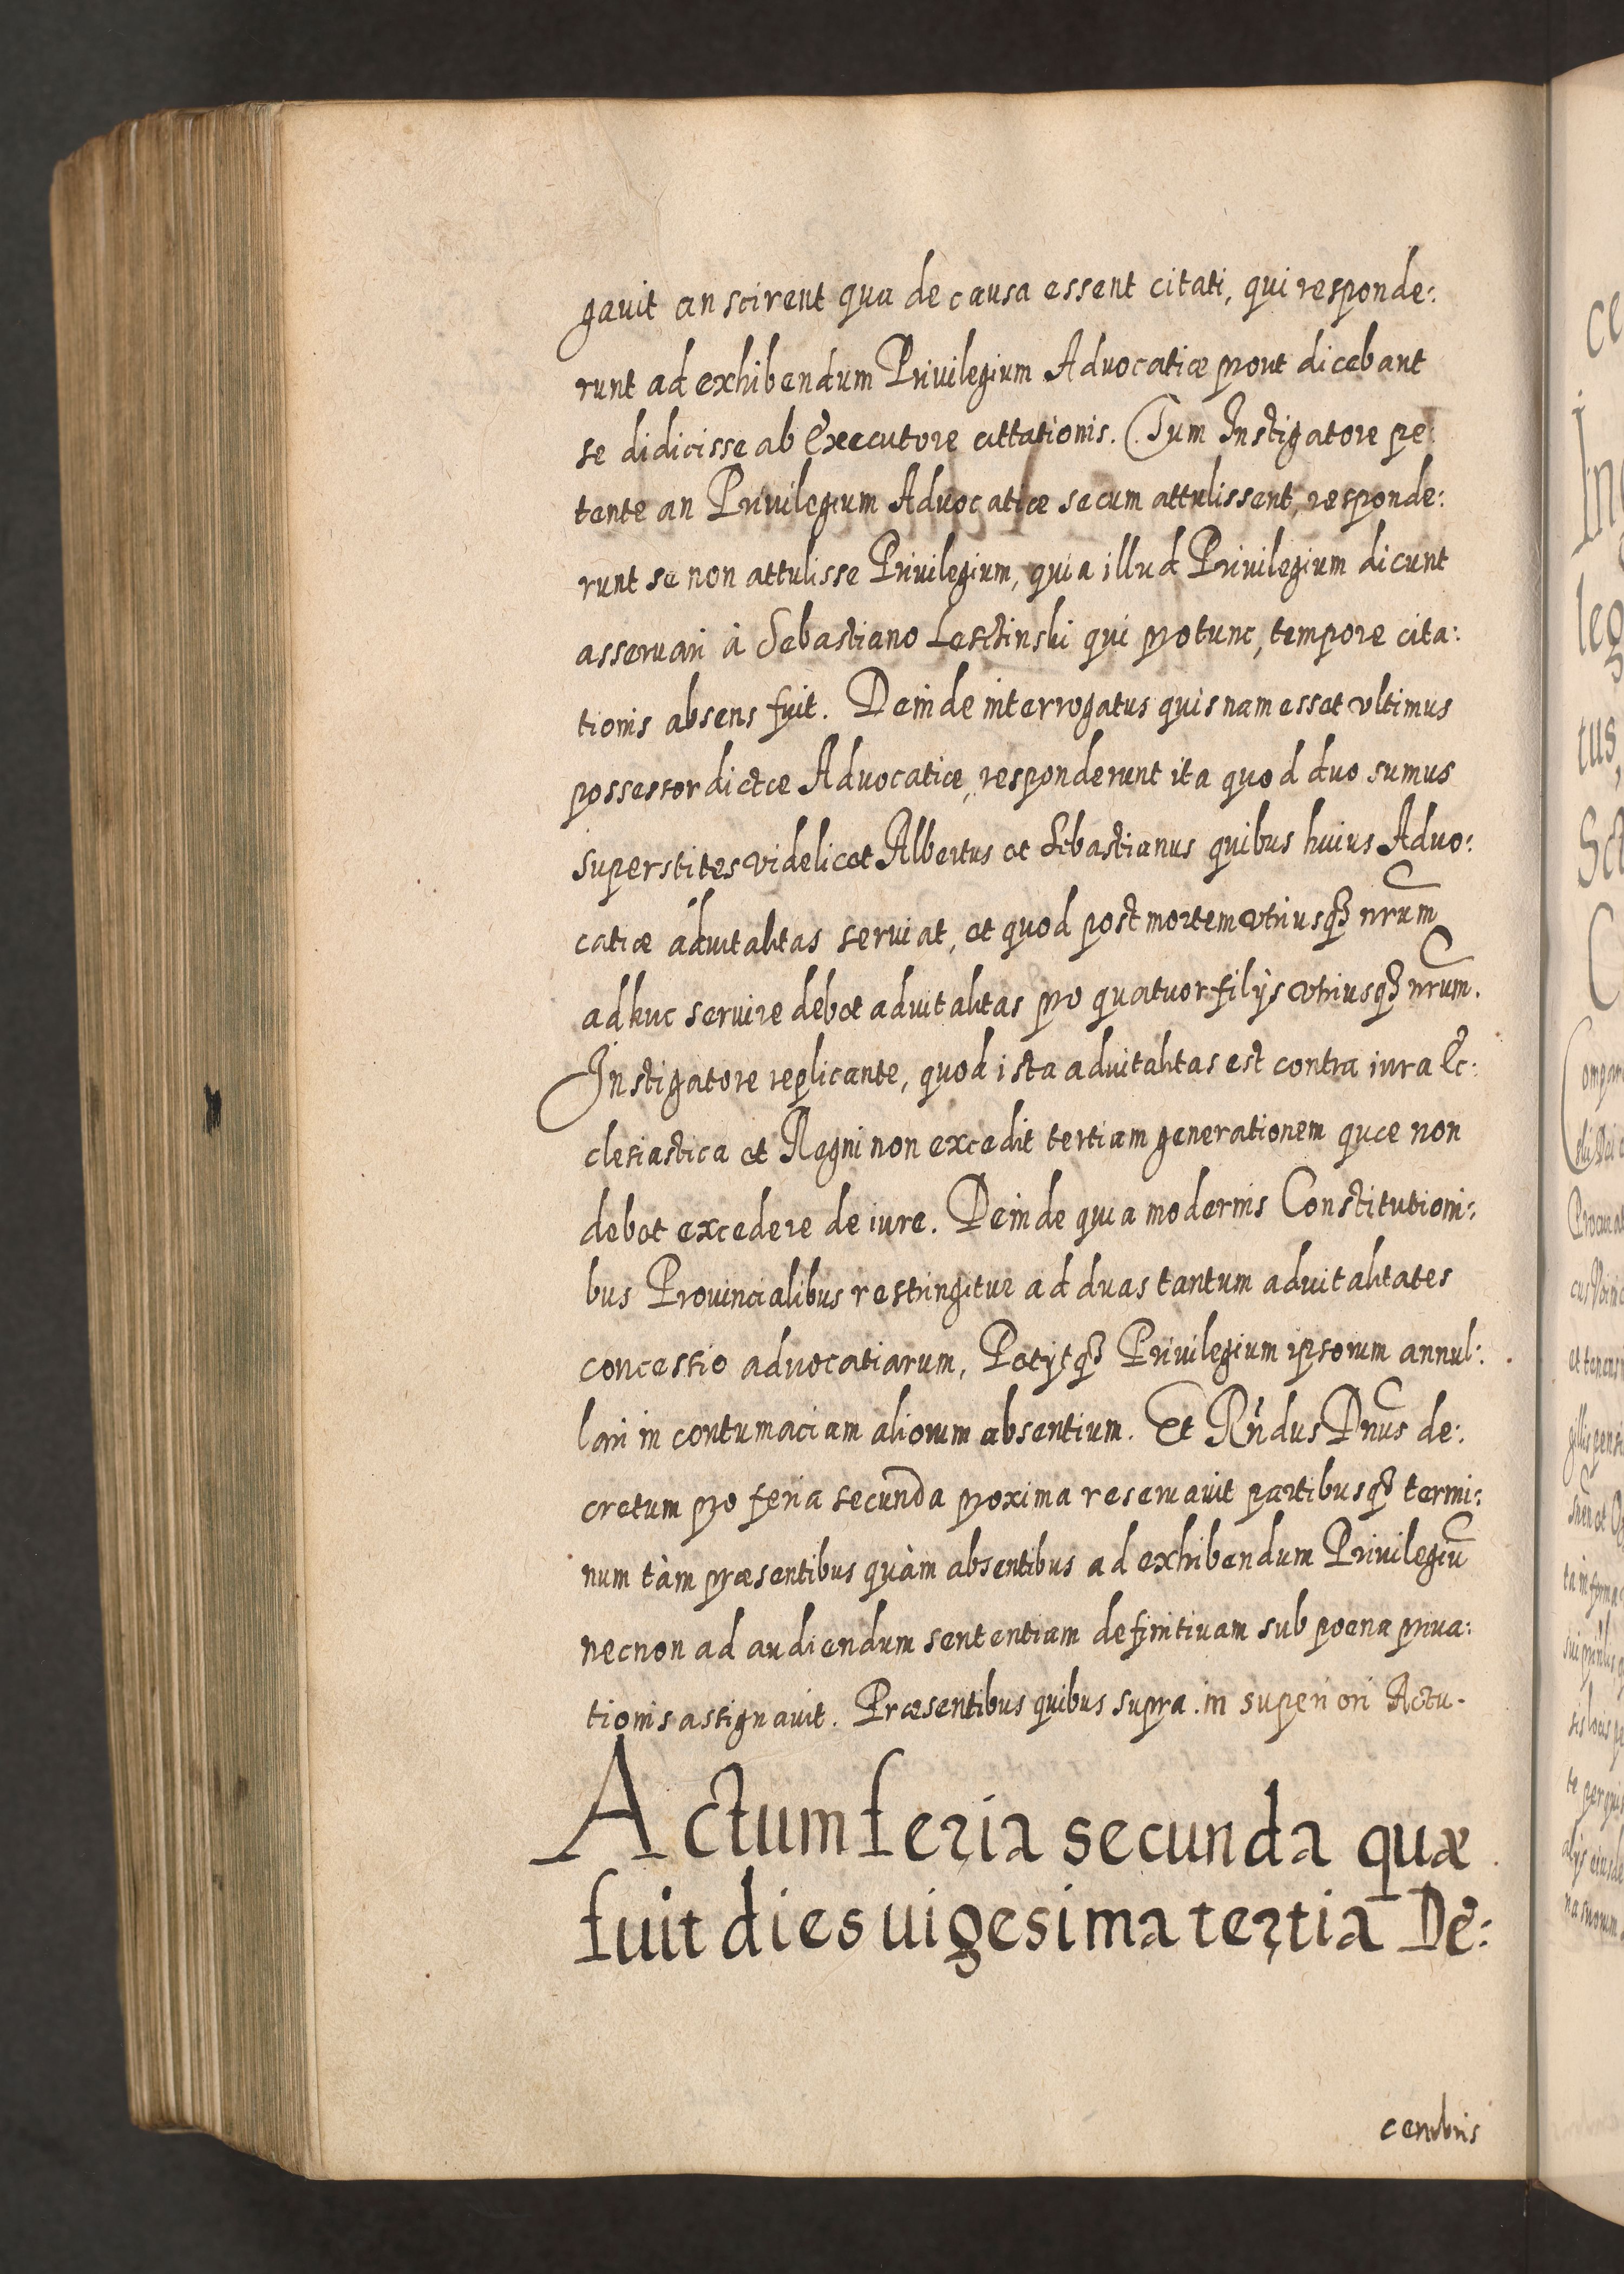 gauit an scirent qua de causa essent citati, qui responde:
runt ad exhibendum Priuilegium Aduocatiæ prout dicebant
se didicisse ab Executore cittationis. Tum Instigatore pe:
tente an Priuilegium Aduocatiæ secum attulissent, responde:
runt se non attulisse Priuilegium, quia illud Priuilegium dicunt
asseruari à Sebastiano Lesctinski qui protunc, tempore cita:
tionis absens fuit. Deinde interrogatus quisnam esset vltimus
possessor dictæ Aduocatiæ, responderunt ita quod duo sumus
superstites videlicet Albertus et Sebastianus quibus huius Aduo:
catiæ aduitalitas seruiat, et quod post mortem vtriusqȝ nr̃um
adhuc seruire debet aduitalitas pro quatuor filÿs vtriusqȝ nr̃um.
Instigatore replicante, quod ista aduitalitas est contra iura Ec:
clesiastica et Regni non excedit tertiam generationem quæ non
debet excedere de iure. Deinde quia modernis Constitutioni:
bus Prouincialibus restringitur ad duas tantum aduitalitates
concessio aduocatiarum, Petÿtqȝ Priuilegium ipsorum annul:
lari in contumaciam aliorum absentium. Et Rñdus Dnũs de:
cretum pro feria secunda proxima reseruauit partibusqȝ termi:
num tàm præsentibus quàm absentibus ad exhibendum Priuilegiũ
necnon ad audiendum sententiam definitiuam sub poena priua:
tionis assignauit. Præsentibus quibus supra in superiori Actu.
Actum feria secunda quæ
fuit dies uigesima tertia De:
cembris